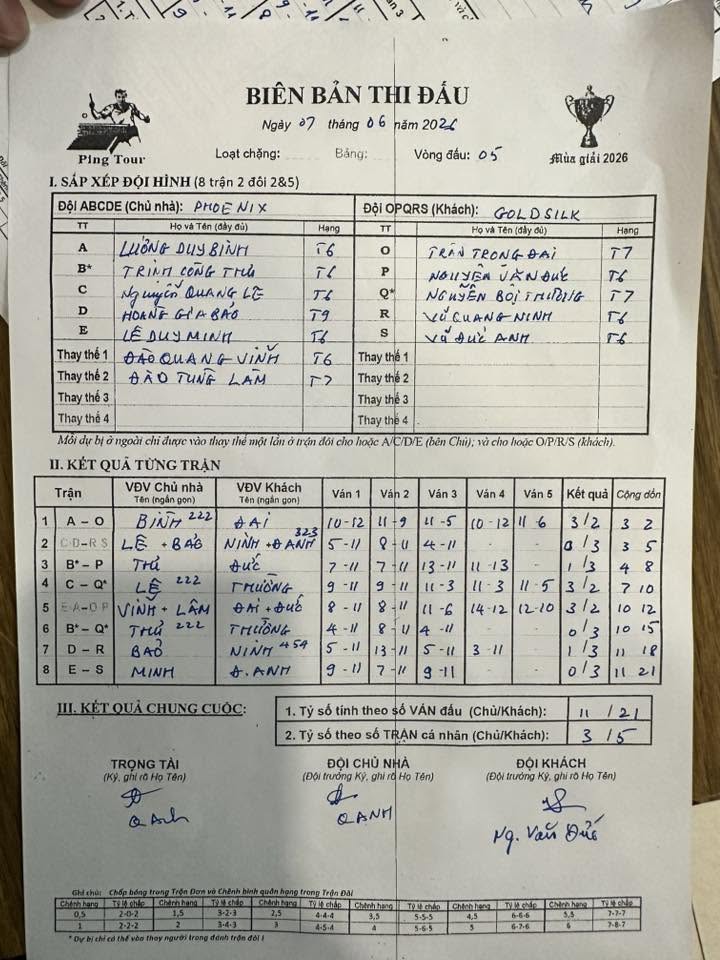 BIÊN BẢN THI ĐẤU
Ngày 07 tháng 06 năm 2026
Ping Tour
Loạt chặng: Bảng: Vòng đấu: 05
Mùa giải 2026
I. SẮP XẾP ĐỘI HÌNH (8 trận 2 đôi 2&5)
Đội ABCDE (Chủ nhà): PHOENIX Đội OPQRS (Khách): GOLDSILK
TT Họ và Tên (đầy đủ) Hạng TT Họ và Tên (đầy đủ) Hạng
A LƯƠNG DUY BÌNH T6 O TRẦN TRỌNG ĐẠI T7
B* TRỊNH CÔNG THỦ T6 P NGUYỄN VĂN ĐỨC T6
C Nguyễn QUANG LÊ T6 Q* NGUYỄN BỘI THƯỜNG T7
D HOÀNG GIA BẢO T9 R VŨ QUANG NINH T6
E LÊ DUY MINH T6 S VŨ ĐỨC ANH T6
Thay thế 1 ĐÀO QUANG VINH T6 Thay thế 1
Thay thế 2 ĐÀO TÙNG LÂM T7 Thay thế 2
Thay thế 3 Thay thế 3
Thay thế 4 Thay thế 4
Mỗi dự bị ở ngoài chỉ được vào thay thế một lần ở trận đôi cho hoặc A/C/D/E (bên Chủ); và cho hoặc O/P/R/S (khách).
II. KẾT QUẢ TỪNG TRẬN
Trận VĐV Chủ nhà Tên (ngắn gọn) VĐV Khách Tên (ngắn gọn) Ván 1 Ván 2 Ván 3 Ván 4 Ván 5 Kết quả Cộng dồn
1 A – O BÌNH 222 ĐẠI 10-12 11-9 11-5 10-12 11-6 3/2 3 2
2 C-D – R S LÊ + BẢO NINH + ĐANH 323 5-11 8-11 4-11 - - 0/3 3 5
3 B* – P THỦ ĐỨC 7-11 7-11 13-11 11-13 1/3 4 8
4 C – Q* LÊ 222 THƯỜNG 9-11 9-11 11-3 11-3 11-5 3/2 7 10
5 E-A – O P VINH + LÂM ĐẠI + ĐỨC 8-11 8-11 11-6 14-12 12-10 3/2 10 12
6 B* – Q* THỦ 222 THƯỜNG 4-11 8-11 4-11 - - 0/3 10 15
7 D – R BẢO NINH 454 5-11 13-11 5-11 3-11 1/3 11 18
8 E – S MINH Đ.ANH 9-11 7-11 9-11 0/3 11 21
III. KẾT QUẢ CHUNG CUỘC:
1. Tỷ số tính theo số VÁN đấu (Chủ/Khách): 11/21
2. Tỷ số theo số TRẬN cá nhân (Chủ/Khách): 3/5
TRỌNG TÀI ĐỘI CHỦ NHÀ ĐỘI KHÁCH
(Ký, ghi rõ Họ Tên) (Đội trưởng Ký, ghi rõ Họ Tên) (Đội trưởng Ký, ghi rõ Họ Tên)
QAnh QANH Ng. Văn Đức
Ghi chú: Chấp bóng trong Trận Đơn và Chênh bình quân hạng trong Trận Đôi
Chênh hạng Tỷ lệ chấp Chênh hạng Tỷ lệ chấp Chênh hạng Tỷ lệ chấp Chênh hạng Tỷ lệ chấp Chênh hạng Tỷ lệ chấp Chênh hạng Tỷ lệ chấp
0,5 2-0-2 1,5 3-2-3 2,5 4-4-4 3,5 5-5-5 4,5 6-6-6 5,5 7-7-7
1 2-2-2 2 3-4-3 3 4-5-4 4 5-6-5 5 6-7-6 6 7-8-7
* Dự bị chỉ có thể vào thay người trong đánh trận đôi !